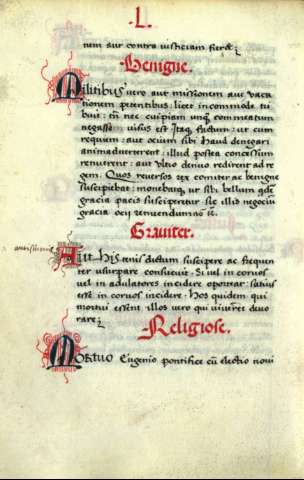 L.
tum aut contra iusticiam fieret
Benigne.
Militibus vero aut missionem aut vaca
tionem petentibus: licet incommode tri
bui: tn̄ nec cuipiam unq̄ commeatum
negasse visus est Itaq̨ factum: ut cum
requiem: aut ocium sibi haud denegari
animadverterent: illud postea concessum
renuerent: aut ultro denuo redirent ad re
gem. Quos reversos rex comiter ac benigne
suscipiebat: monebatq̨ ut sibi bellum qđ
gracia pacis susciperetur sic illis negociū
gracia ocij
Graviter.
antisthenis
Ait his
dictum suscipere ac frequen
ter usurpare consuevit. Si vel in corvos
vel in adulatores incidere oporteat: satius
esse in corvos incidere. Hos quidem qui
mortui essent illos vero qui viverēt devo
rare
Religiose.
Mortuo Eugenio pontifice cū electio novi